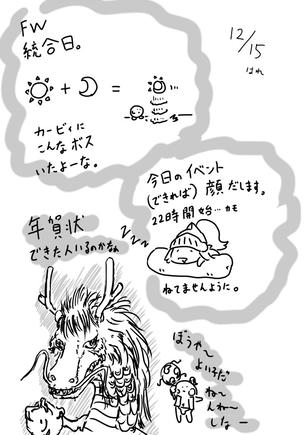 12/15
はれ
FW
統合日。
+ =
カービィに
こんなボス
いたよーな。
今日のイベント
(できれば)顔だします。
22時開始…カモ
ねてませんように。
年賀状
できた人いるのかなぁ
ぼうや〜
よいこだ
ね〜
んね〜
しな〜